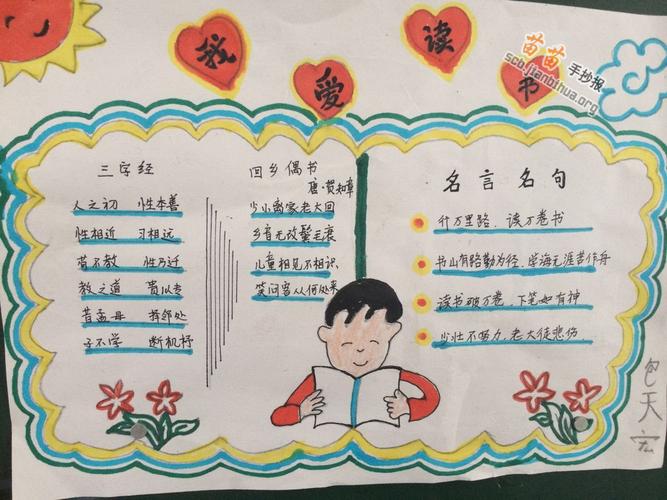 我爱读书
苗苗手抄报
scb.jianbihua.org
三字经
人之初 性本善
性相近 习相远
苟不教 性乃迁
教之道 贵以专
昔孟母 择邻处
子不学 断机杼
回乡偶书
唐·贺知章
少小离家老大回
乡音无改鬓毛衰
儿童相见不相识
笑问客从何处来
名言名句
行万里路、读万卷书
书山有路勤为径、学海无涯苦作舟
读书破万卷、下笔如有神
少壮不努力、老大徒悲伤
包天